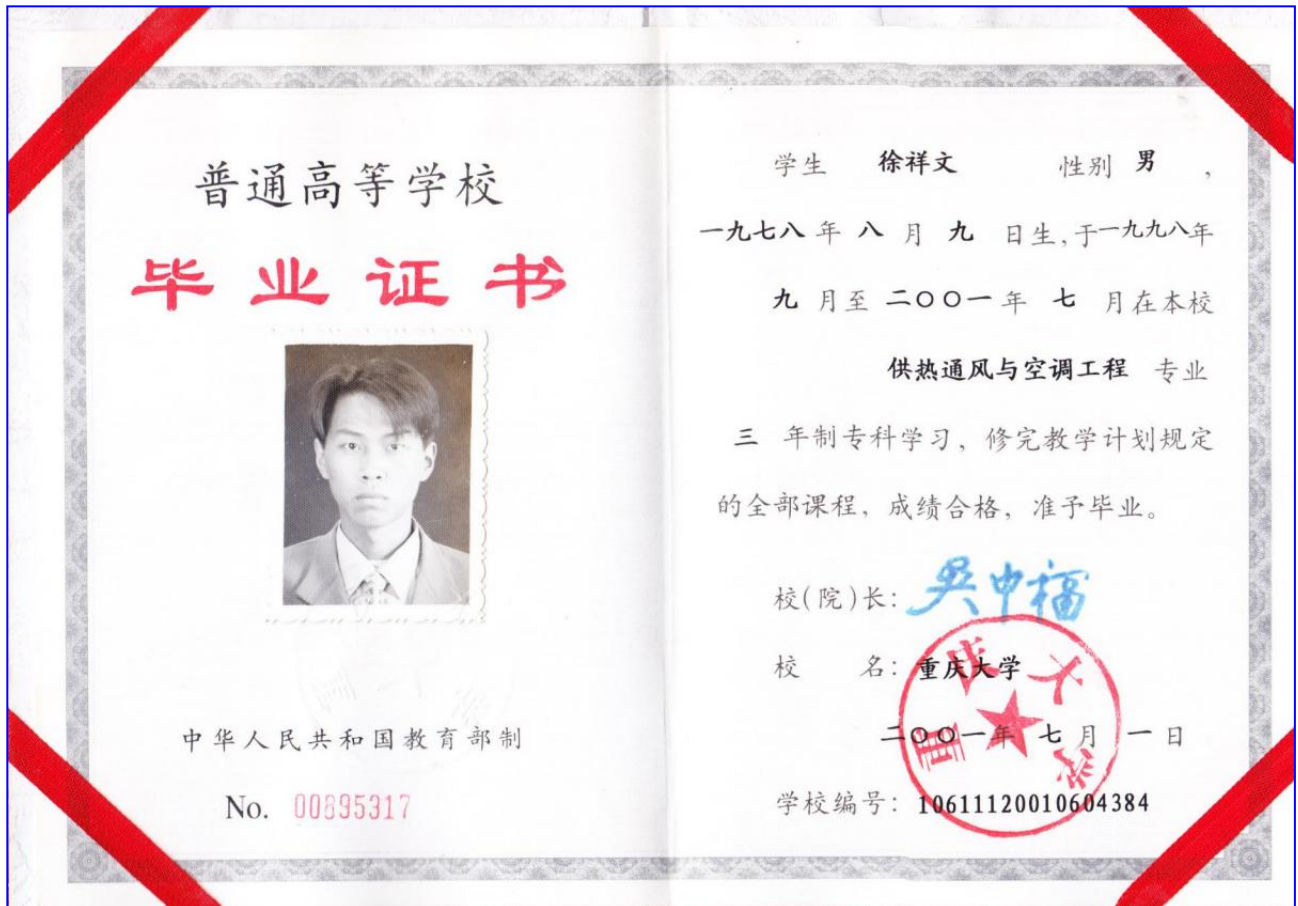 普通高等学校
毕业证书
中华人民共和国教育部制
No. 00895317
学生 徐祥文 性别 男 ,
一九七八 年 八 月 九 日生,于一九九八年
九 月至 二〇〇一 年 七 月在本校
供热通风与空调工程 专业
三 年制专科学习，修完教学计划规定
的全部课程，成绩合格，准予毕业。
校(院)长: 吴中福
校 名: 重庆大学
二〇〇一年 七 月 一 日
学校编号: 10611120010604384
重庆大学